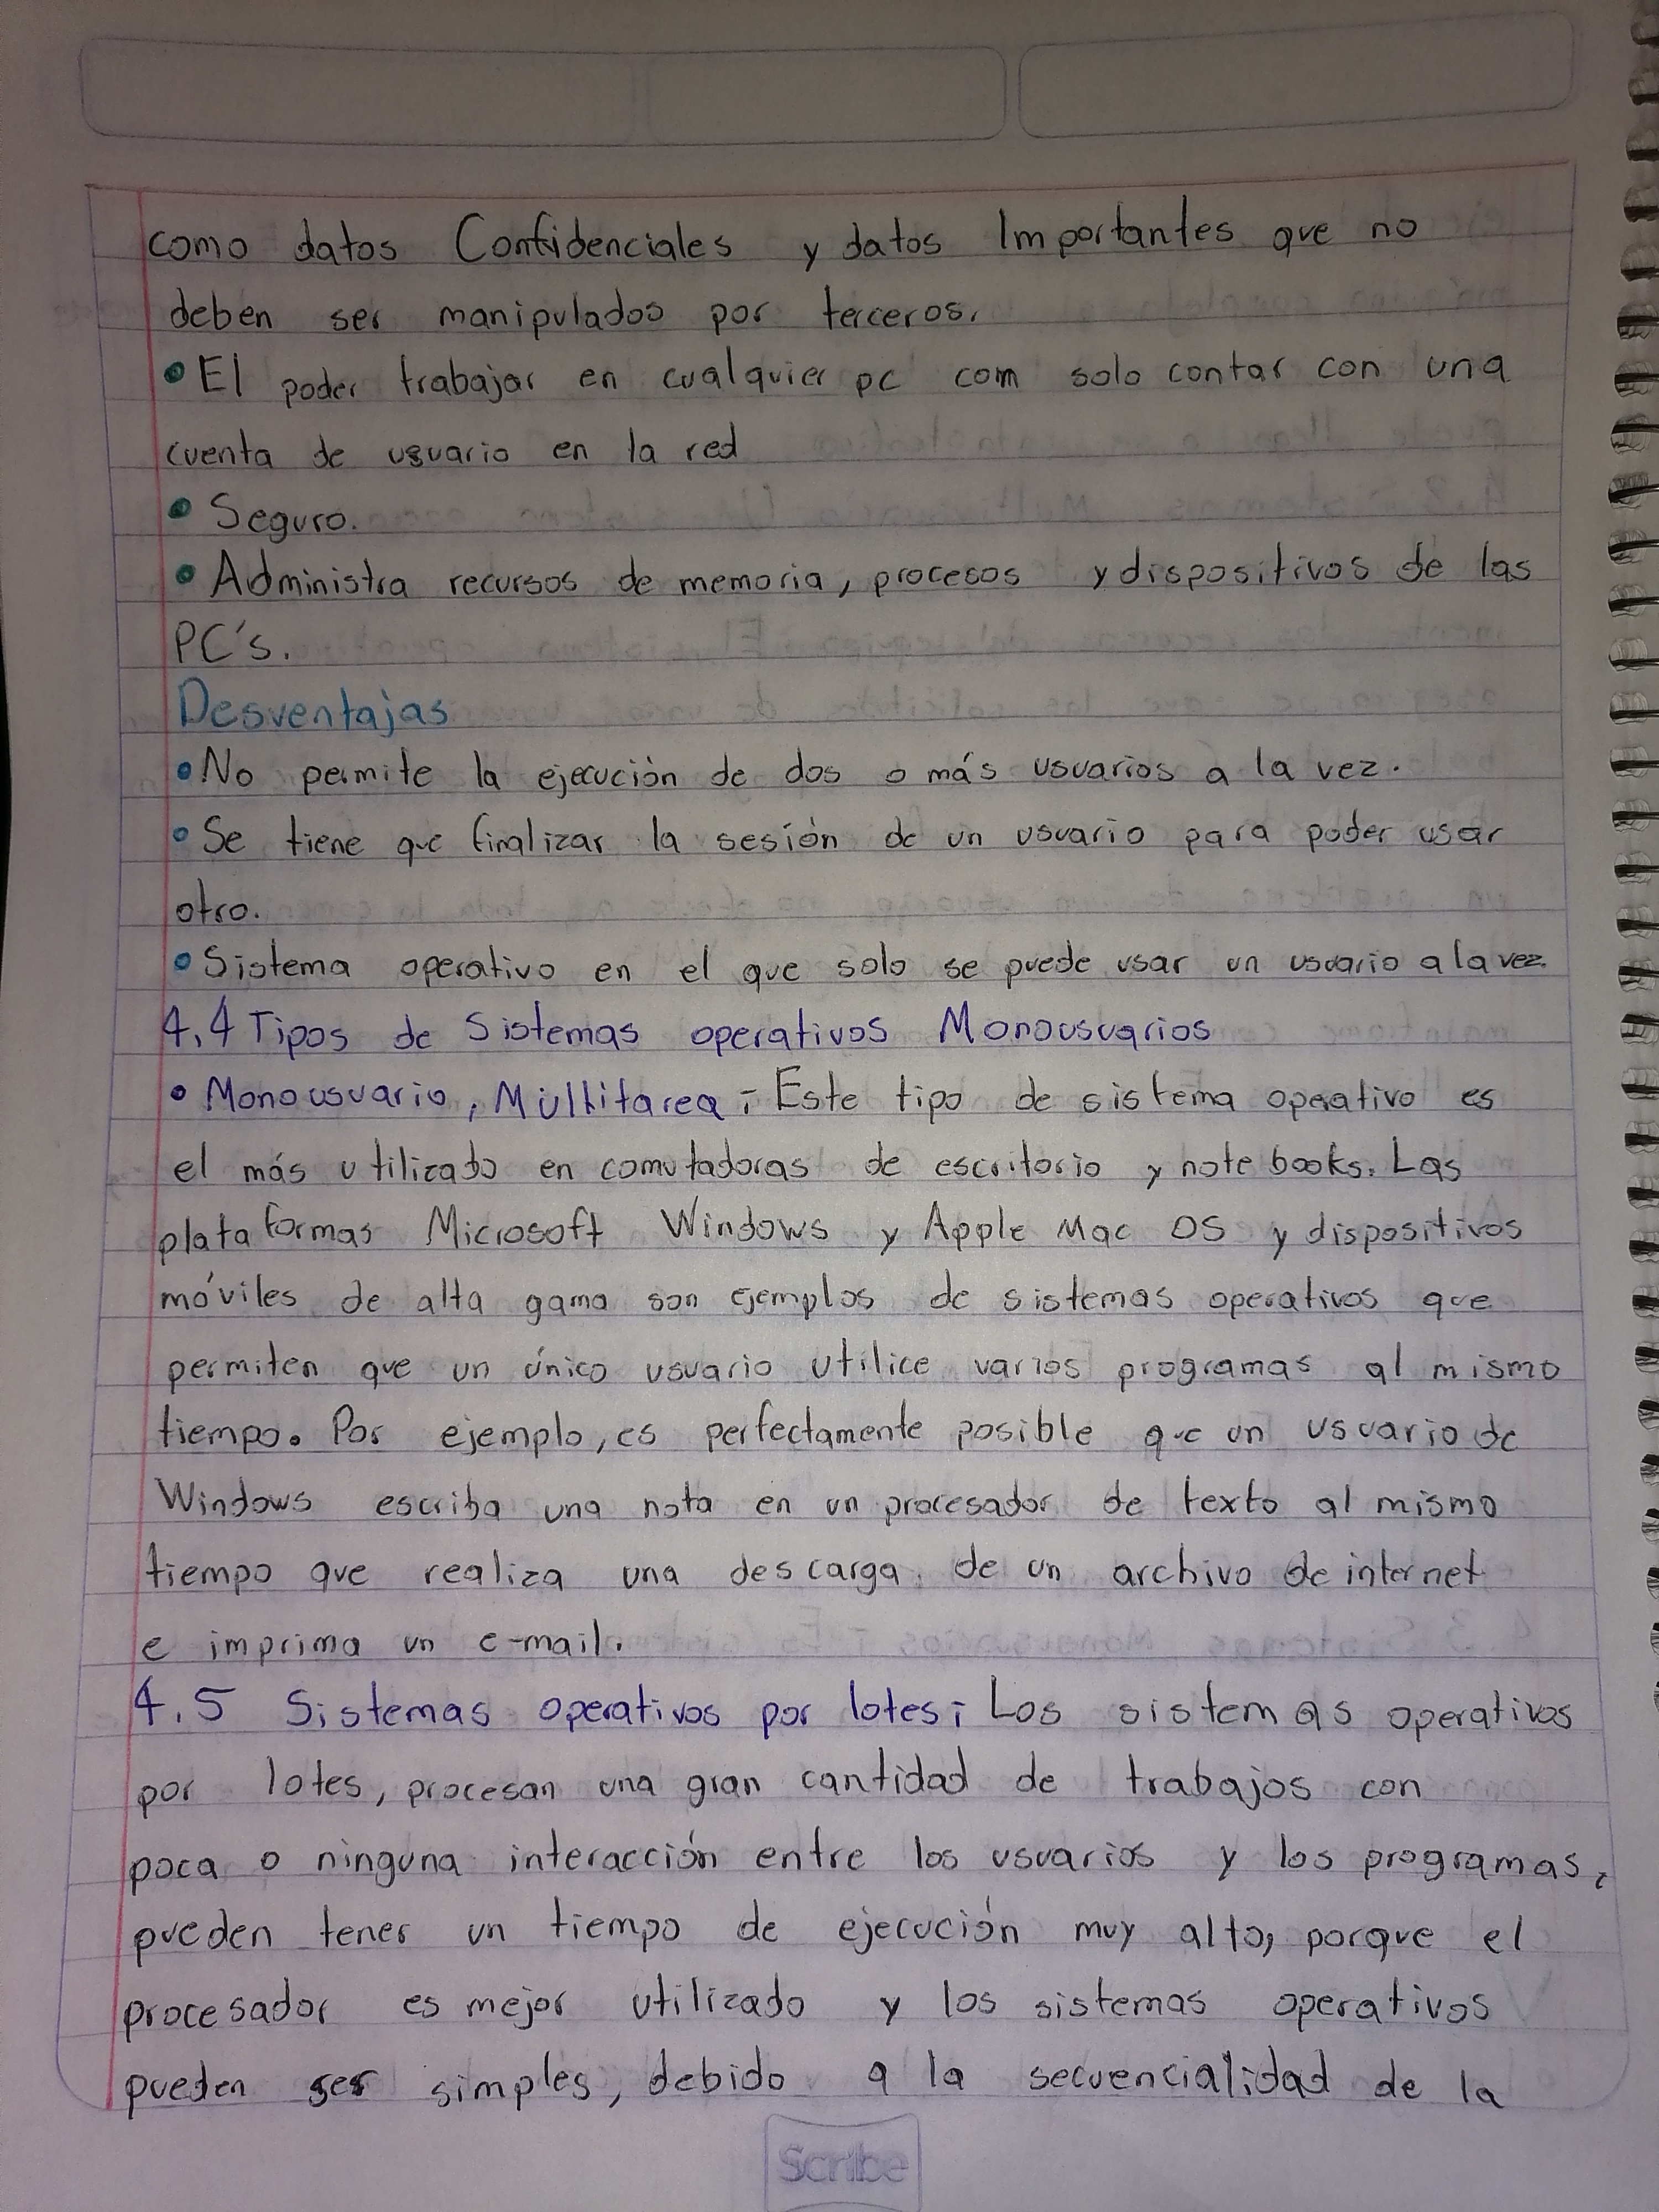 como datos Confidenciales y datos Importantes que no
deben ser manipulados por terceros.
• El poder trabajar en cualquier pc com solo contar con una
cuenta de usuario en la red
• Seguro.
• Administra recursos de memoria, procesos y dispositivos de las
PC's.
Desventajas
• No permite la ejecución de dos o más usuarios a la vez.
• Se tiene que finalizar la sesión de un usuario para poder usar
otro.
• Sistema operativo en el que solo se puede usar un usuario a la vez.
4.4 Tipos de Sistemas operativos Monousuarios
• Monousuario, Múltitarea: Este tipo de sistema opeativo es
el más utilizado en comutadoras de escritorio y note books. Las
plataformas Microsoft Windows y Apple Mac OS y dispositivos
móviles de alta gama son ejemplos de sistemas operativos que
permiten que un único usuario utilice varios programas al mismo
tiempo. Por ejemplo, es perfectamente posible que un usuario de
Windows escriba una nota en un procesador de texto al mismo
tiempo que realiza una descarga de un archivo de internet
e imprima un e-mail.
4.5 Sistemas operativos por lotes: Los sistemas operativos
por lotes, procesan una gran cantidad de trabajos con
poca o ninguna interacción entre los usuarios y los programas,
pueden tener un tiempo de ejecución muy alto, porque el
procesador es mejor utilizado y los sistemas operativos
pueden ser simples, debido a la secuencialidad de la
Scribe